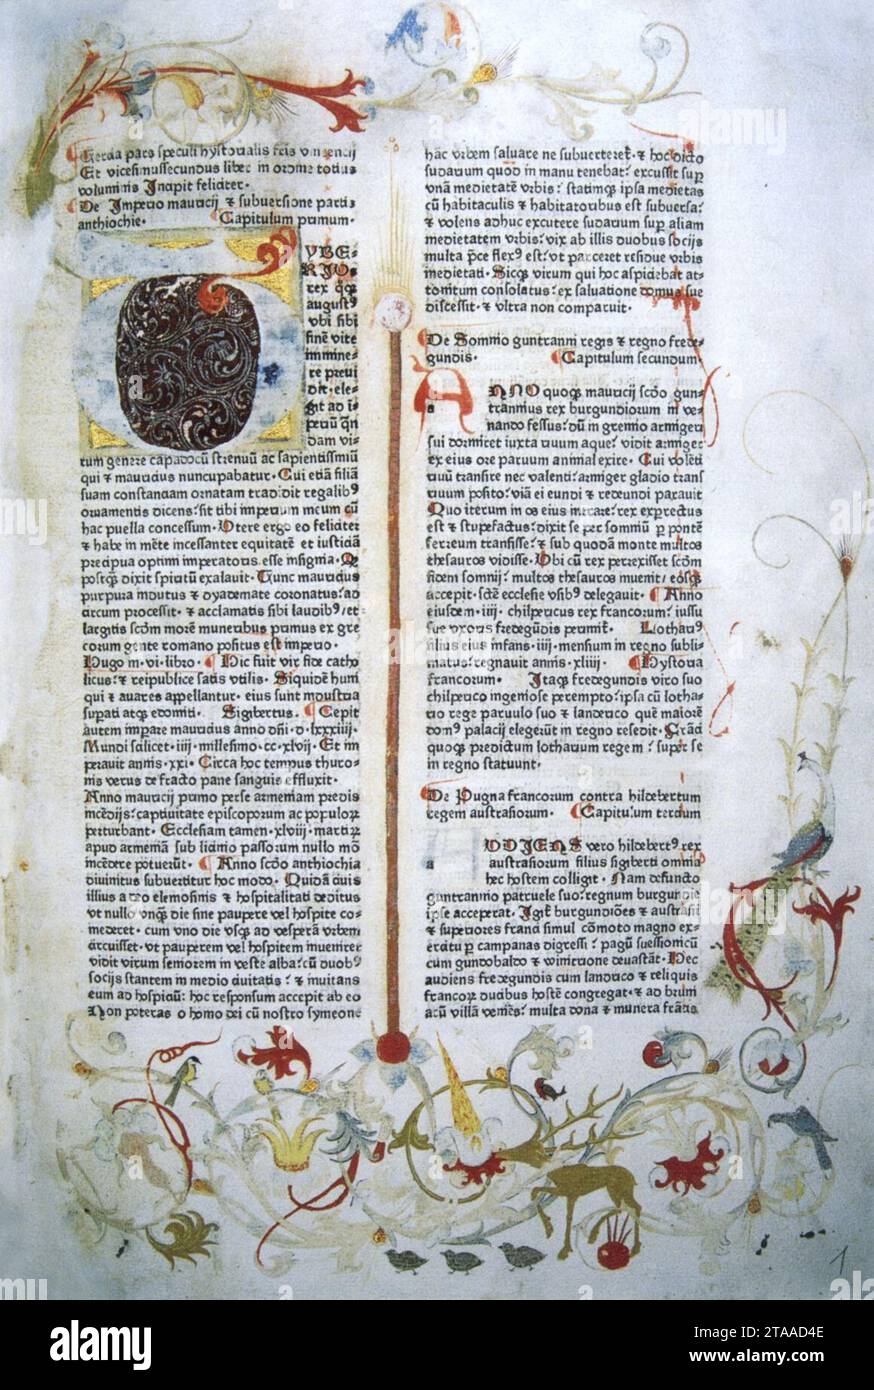 Tercia pars speculi hystorialis fr̄is vincencij
Et vicesimussecundus liber in ordine tocius
voluminis Incipit feliciter·
De Imperio mauricij ⁊ subuersione partis
anthiochie· Capitulum primum·
TYBE⸗
RIꝰ
rex
augustꝰ
vbi sibi
finē vite
immine⸗
re previ
dit· ele⸗
git ad ī⸗
periū
dam vi⸗
rum genere capadocū strenuū ac sapientissimū
qui ⁊ mauricius nuncupabatur· Cui etiā filiā
suam constanciam ornatam tradidit regalibꝰ
ornamentis dicens· sit tibi imperium meum cū
hac puella concessum· Vtere ergo eo feliciter
⁊ habe in mēte incessanter equitatē et iusticiā
precipua optimi imperatoris esse insignia· Qͥ
postqͣ dixit spiritū exalauit· Tunc mauricius
purpura indutus ⁊ dyademate coronatus· ad
circum processit· ⁊ acclamatis sibi laudibꝰ· et
largitis scd̄m morē muneribus primus ex gre
corum gente romano positus est imperio·
Hugo in· vi· libro· Hic fuit vir fide catho
licus· ⁊ reipublice satis vtilis· Siquidē huni
qui ⁊ auares appellantur· eius sunt industria
supati atqꝫ edomiti· Sigibertus· Cepit
autem impare mauricius anno dn̄i· d· lxxxiiij·
Mundi scilicet· iiij· millesimo· cc· xlvij· Et im
perauit annis· xxi· Circa hoc tempus thuro⸗
nis verus de fracto pane sanguis effluxit·
Anno mauricij primo perse armeniam predis
incēdijs· captiuitate episcoporum ac populorꝝ
perturbant· Ecclesiam tamen· xlviij· martirꝝ
apud armeniā sub licinio passorum nullo mō
incēdere potuerūt· Anno scd̄o anthiochia
diuinitus subuertitur hoc modo· Quidā ciuis
illius a deo elemosinis ⁊ hospitalitati deditus
vt nullo vnqꝫ die sine paupere vel hospite co⸗
mederet· cum vno die vsqꝫ ad vesperā vrbem
circuisset· vt pauperem vel hospitem inueniret
vidit virum seniorem in veste alba· cū duobꝰ
socijs stantem in medio ciuitatis· ⁊ inuitans
eum ad hospiciū· hoc responsum accepit ab eo
Non poteris o homo dei cū nostro symeone
hāc vrbem saluare ne subuerteret̄· ⁊ hoc dicto
sudarium quod in manu tenebat· excussit sup̱
vnā medietatē vrbis· statimqꝫ ipsa medietas
cū habitaculis ⁊ habitatoribus est subuersa·
⁊ volens adhuc excutere sudariū sup̱ aliam
medietatem vrbis· vix ab illis duobus socijs
multa p̄ce flexꝰ est· vt parceret residue vrbis
medietati· Sicqꝫ virum qui hoc aspiciebat at⸗
tonitum consolatus· ex saluatione domus sue
discessit· ⁊ vltra non comparuit·
De Sompnio guntranni regis ⁊ regno frede⸗
gundis· Capitulum secundum·
a
ANNO quoqꝫ mauricij scd̄o gun⸗
trannus rex burgundiorum in ve⸗
nando fessus· dū in gremio armigeri
sui dormiret iuxta riuum aque· vidit armiger
ex eius ore paruum animal exire· Cui volēti
riuū transire nec valenti· armiger gladio trans
riuum posito· viā ei eundi ⁊ redeundi parauit
Quo iterum in os eius intrāte· rex exp̱rectus
est ⁊ stupefactus· dixit se per somniū p̱ pontē
ferreum transisse· ⁊ sub quodā monte multos
thesauros vidisse· Vbi cū rex perrexisset scd̄m
fidem somnij· multos thesauros inuenit· eosqꝫ
accepit· scd̄e ecclesie vsibꝰ delegauit· Anno
eiusdem· iiij· chilpericus rex francorum· iussu
sue vxoris fredegūdis perimit̄· Lothariꝰ
filius eius infans· iiij· mensium in regno subli
matus· regnauit annis· xliiij· Hystoria
francorum· Itaqꝫ fredegundis viro suo
chilperico ingeniose perempto· ipsa cū lotha⸗
rio rege paruulo suo ⁊ landerico quē maiorē
domꝰ palacij elegerūt in regno resedit· Frāci
quoqꝫ predictum lotharium regem· super se
in regno statuunt·
De Pugna francorum contra hildebertum
regem austrasiorum· Capitulum tercium
a
VDIENS vero hildebertꝰ rex
austrasiorum filius sigiberti omnia
hec hostem colligit· Nam defuncto
guntranno patruele suo· regnum burgundie
ipse acceperat· Igit̄ burgundiōes ⁊ austrasij
⁊ superiores franci simul cōmoto magno ex⸗
ercitu p̱ campanas digressi· pagū suessionicū
cum gundobaldo ⁊ wintrione deuastāt· Hec
audiens fredegundis cum landerico ⁊ reliquis
francorꝝ ducibus hostē congregat· ⁊ ad briui
acū villā veniēs· multa dona ⁊ munera frācis
1
alamy
Image ID: 2TAAD4E
www.alamy.com